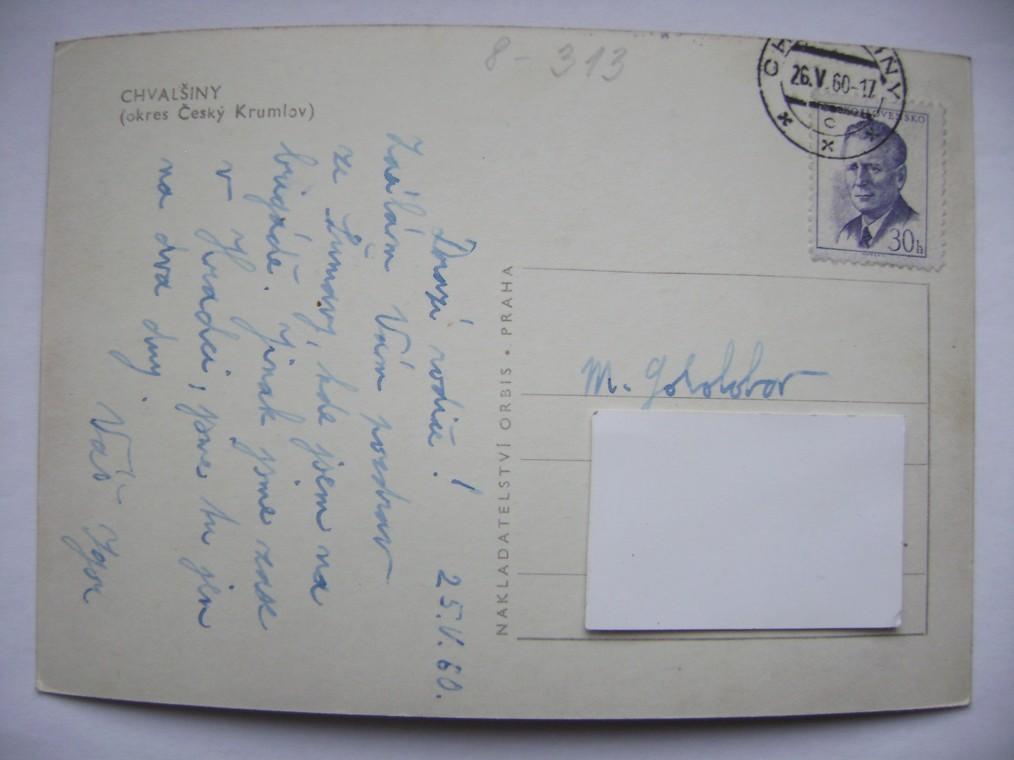 CHVALŠINY
(okres Český Krumlov)
8-313
26.V.60-17
ČESKOSLOVENSKO
30h
Drazí rodiče! 25.V.60.
Zasílám Vám pozdrav
ze Šumavy, kde jsem na
brigádě. Jinak jsme zase
v Hradci, jsme tu jen
na dva dny.
Váš Igor
NAKLADATELSTVÍ ORBIS • PRAHA
M. Goloborov